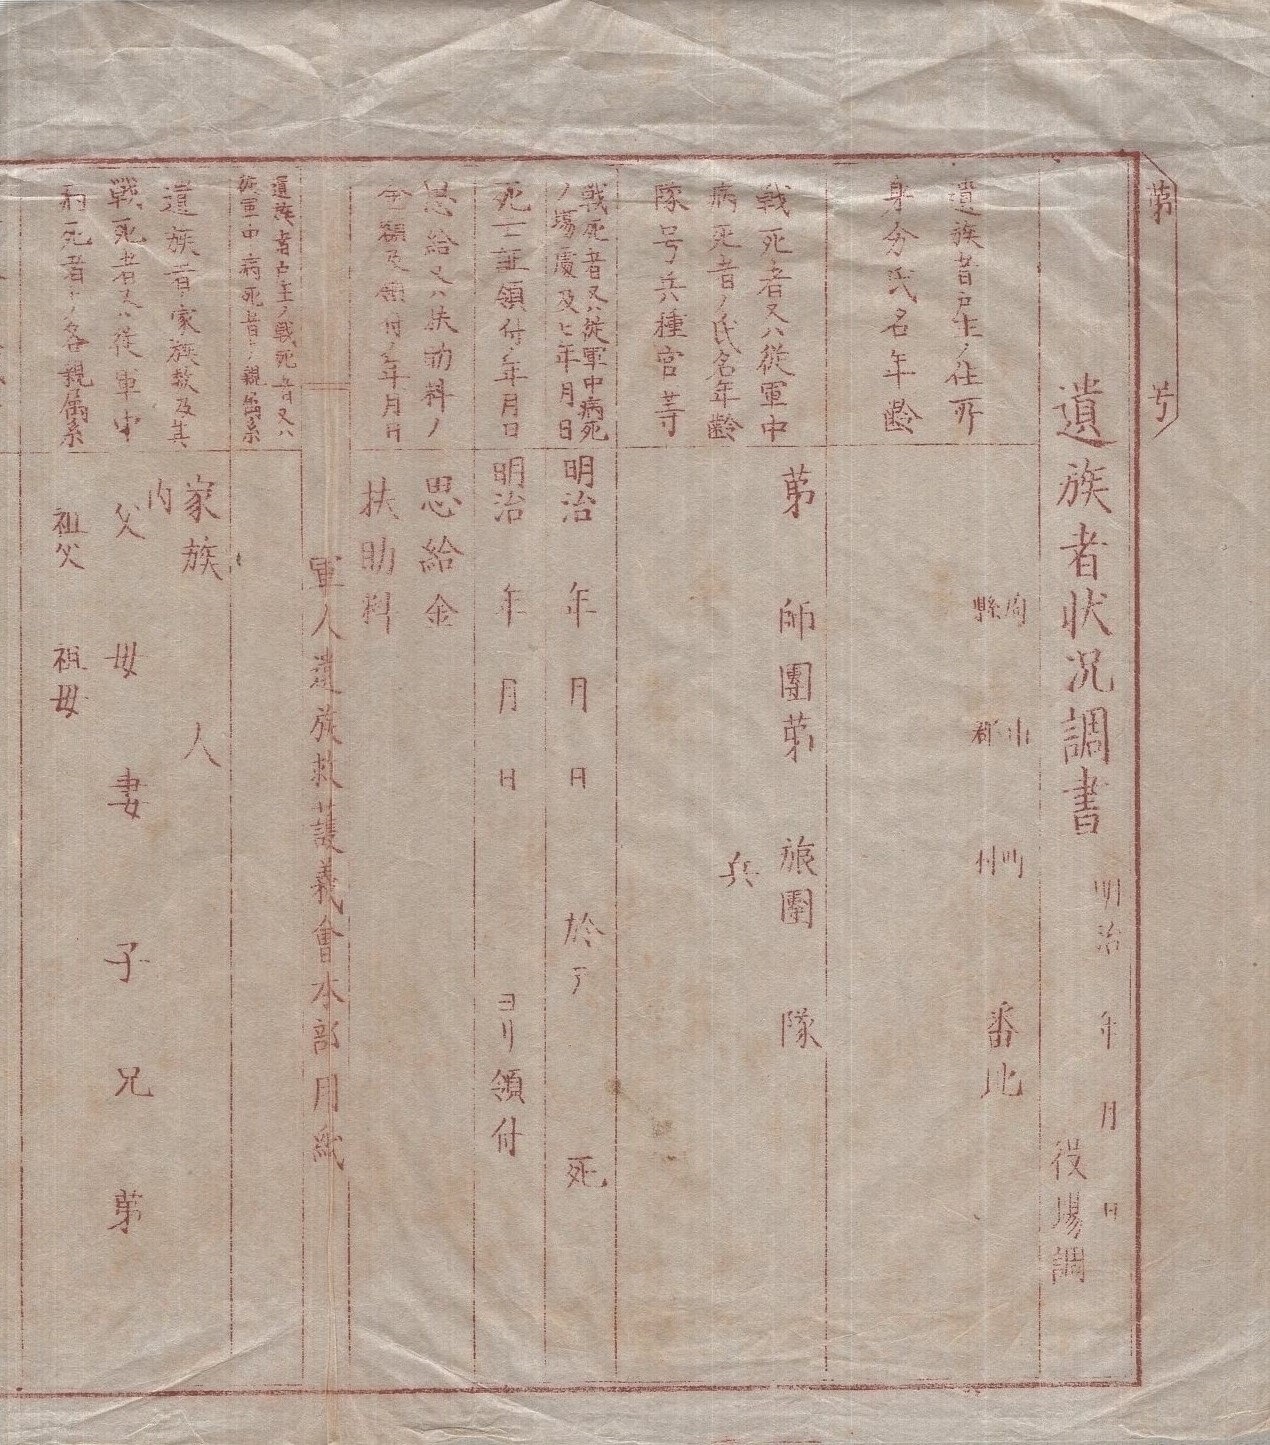 第 号
遺族者状況調書
明治 年 月 日
役場調
遺族者戸主ノ住所
身分氏名年齢
縣 郡 村
番地
戦死者又ハ従軍中
病死者ノ氏名年齢
隊号兵種官等
第 師團第 旅團 隊
兵
戦死者又ハ従軍中病死
ノ場處及ヒ年月日
明治 年 月 日 於テ 死
死亡証領付ノ年月日
明治 年 月 日 ヨリ領付
恩給又ハ扶助料ノ
金額及領付ノ年月日
恩給金
扶助料
軍人遺族救護義會本部用紙
遺族者戸主ノ戦死者又ハ
従軍中病死者トノ親属系
遺族者ノ家族数及其
戦死者又ハ従軍中
病死者トノ各親属系
家族 人
内
父 母 妻 子 兄 弟
祖父 祖母